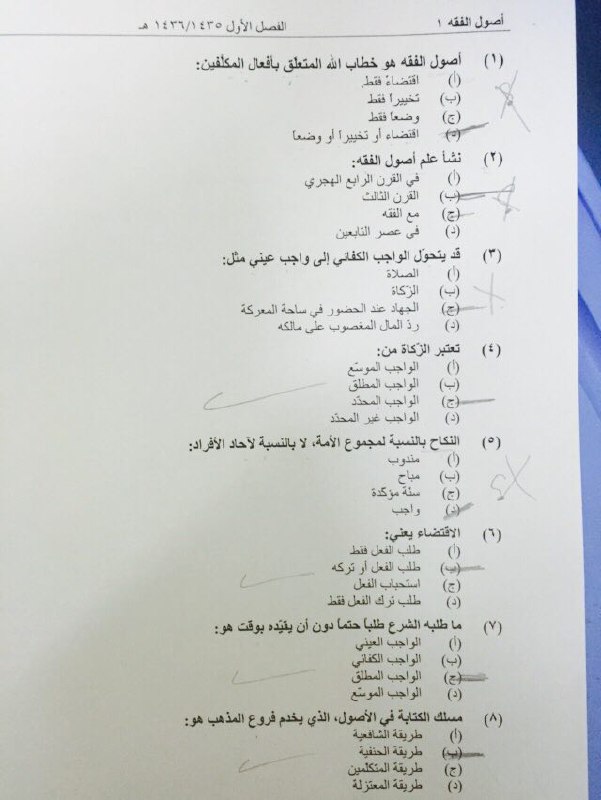 أصول الفقه ١ الفصل الأول ١٤٣٦/١٤٣٥ هـ
(١) أصول الفقه هو خطاب الله المتعلّق بأفعال المكلّفين:
(أ) اقتضاءً فقط
(ب) تخييراً فقط
(ج) وضعاً فقط
(د) اقتضاء أو تخييراً أو وضعاً
(٢) نشأ علم أصول الفقه:
(أ) في القرن الرابع الهجري
(ب) القرن الثالث
(ج) مع الفقه
(د) في عصر التابعين
(٣) قد يتحوّل الواجب الكفائي إلى واجب عيني مثل:
(أ) الصلاة
(ب) الزكاة
(ج) الجهاد عند الحضور في ساحة المعركة
(د) ردّ المال المغصوب على مالكه
(٤) تعتبر الزّكاة من:
(أ) الواجب الموسّع
(ب) الواجب المطلق
(ج) الواجب المحدّد
(د) الواجب غير المحدّد
(٥) النكاح بالنسبة لمجموع الأمة، لا بالنسبة لآحاد الأفراد:
(أ) مندوب
(ب) مباح
(ج) سنة مؤكّدة
(د) واجب
(٦) الاقتضاء يعني:
(أ) طلب الفعل فقط
(ب) طلب الفعل أو تركه
(ج) استحباب الفعل
(د) طلب ترك الفعل فقط
(٧) ما طلبه الشرع طلباً حتماً دون أن يقيّده بوقت هو:
(أ) الواجب العيني
(ب) الواجب الكفائي
(ج) الواجب المطلق
(د) الواجب الموسّع
(٨) مسلك الكتابة في الأصول، الذي يخدم فروع المذهب هو:
(أ) طريقة الشافعية
(ب) طريقة الحنفية
(ج) طريقة المتكلّمين
(د) طريقة المعتزلة